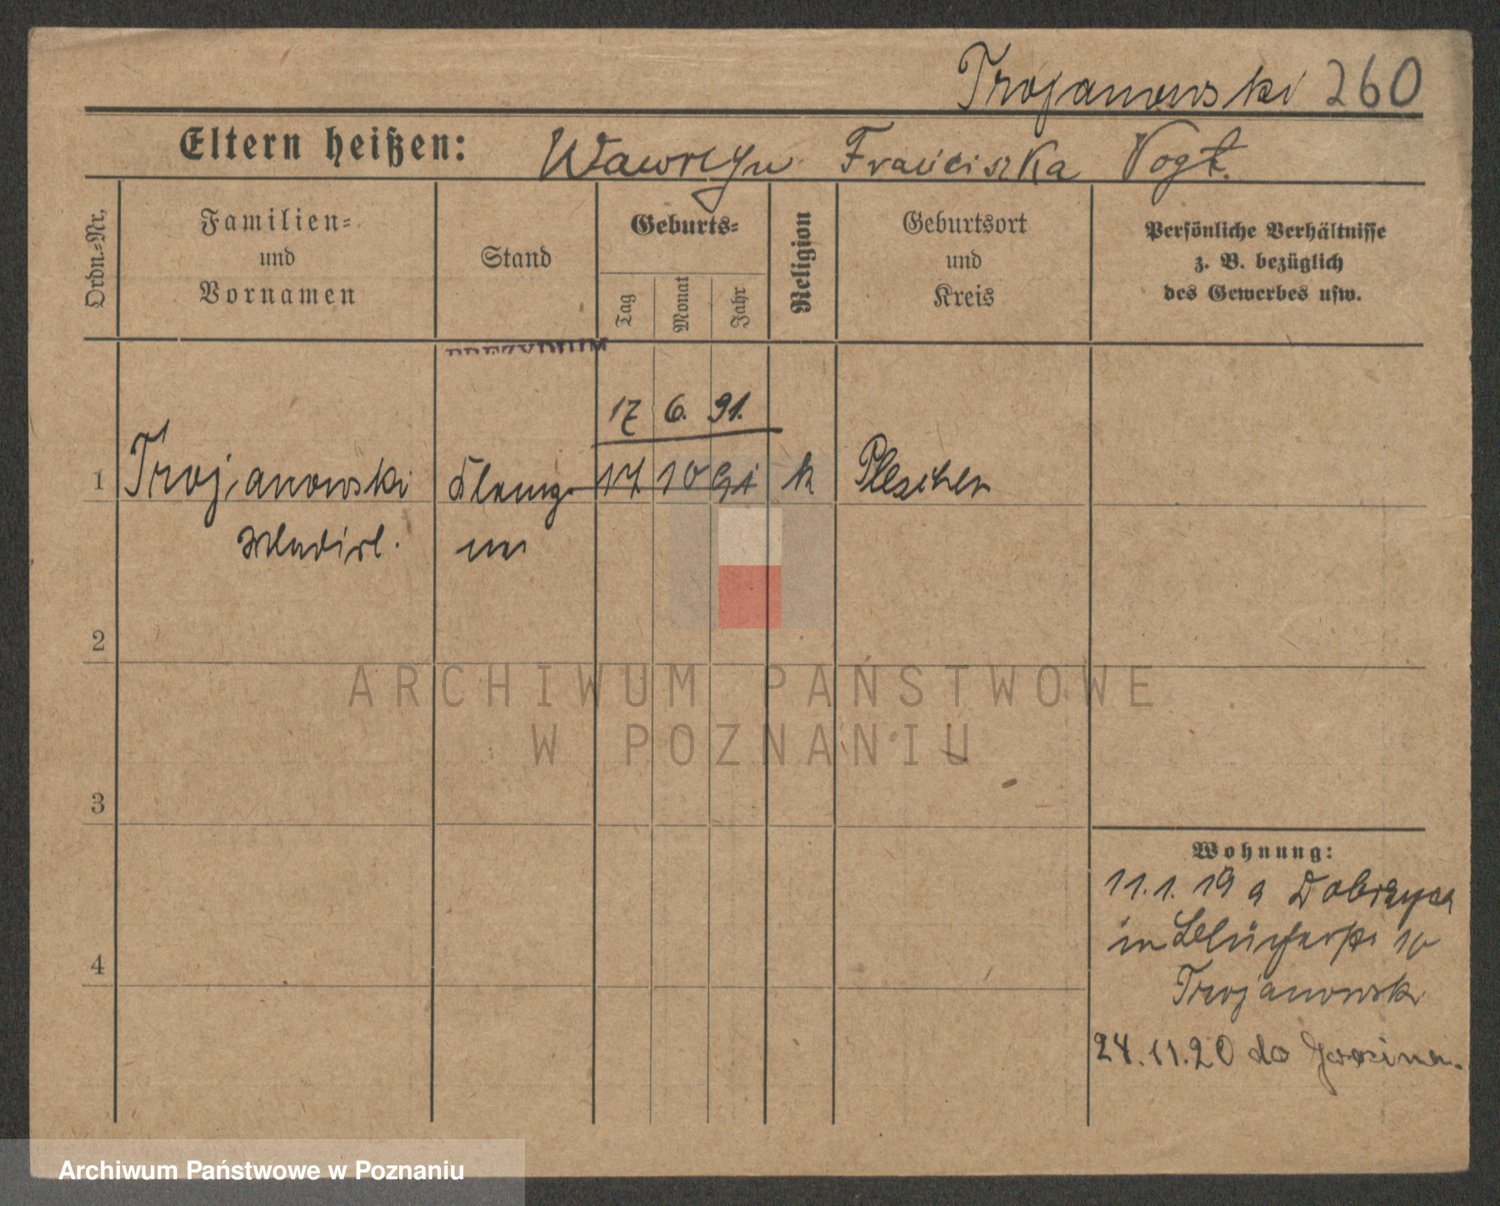 Trojanowski 260
Eltern heißen: Wawrzyn Franciszka Vogt.
Ordn.-Nr.
Familien- und Vornamen
Stand
Geburts-
Tag Monat Jahr
Religion
Geburtsort und Kreis
Persönliche Verhältnisse z. B. bezüglich des Gewerbes usw.
17 6. 91.
1 Trojanowski 17 10 91 k Pleschen
Wladisl.
2
3
4
Wohnung:
11.1.19 a Dobrzyca
in Blücherstr 10
Trojanowski
24.11.20 do
ARCHIWUM PAŃSTWOWE
W POZNANIU
Archiwum Państwowe w Poznaniu